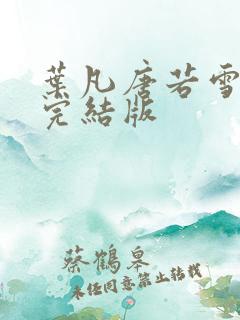 葉凡唐若雪
完結版
蔡鶴皋
未经同意禁止转载